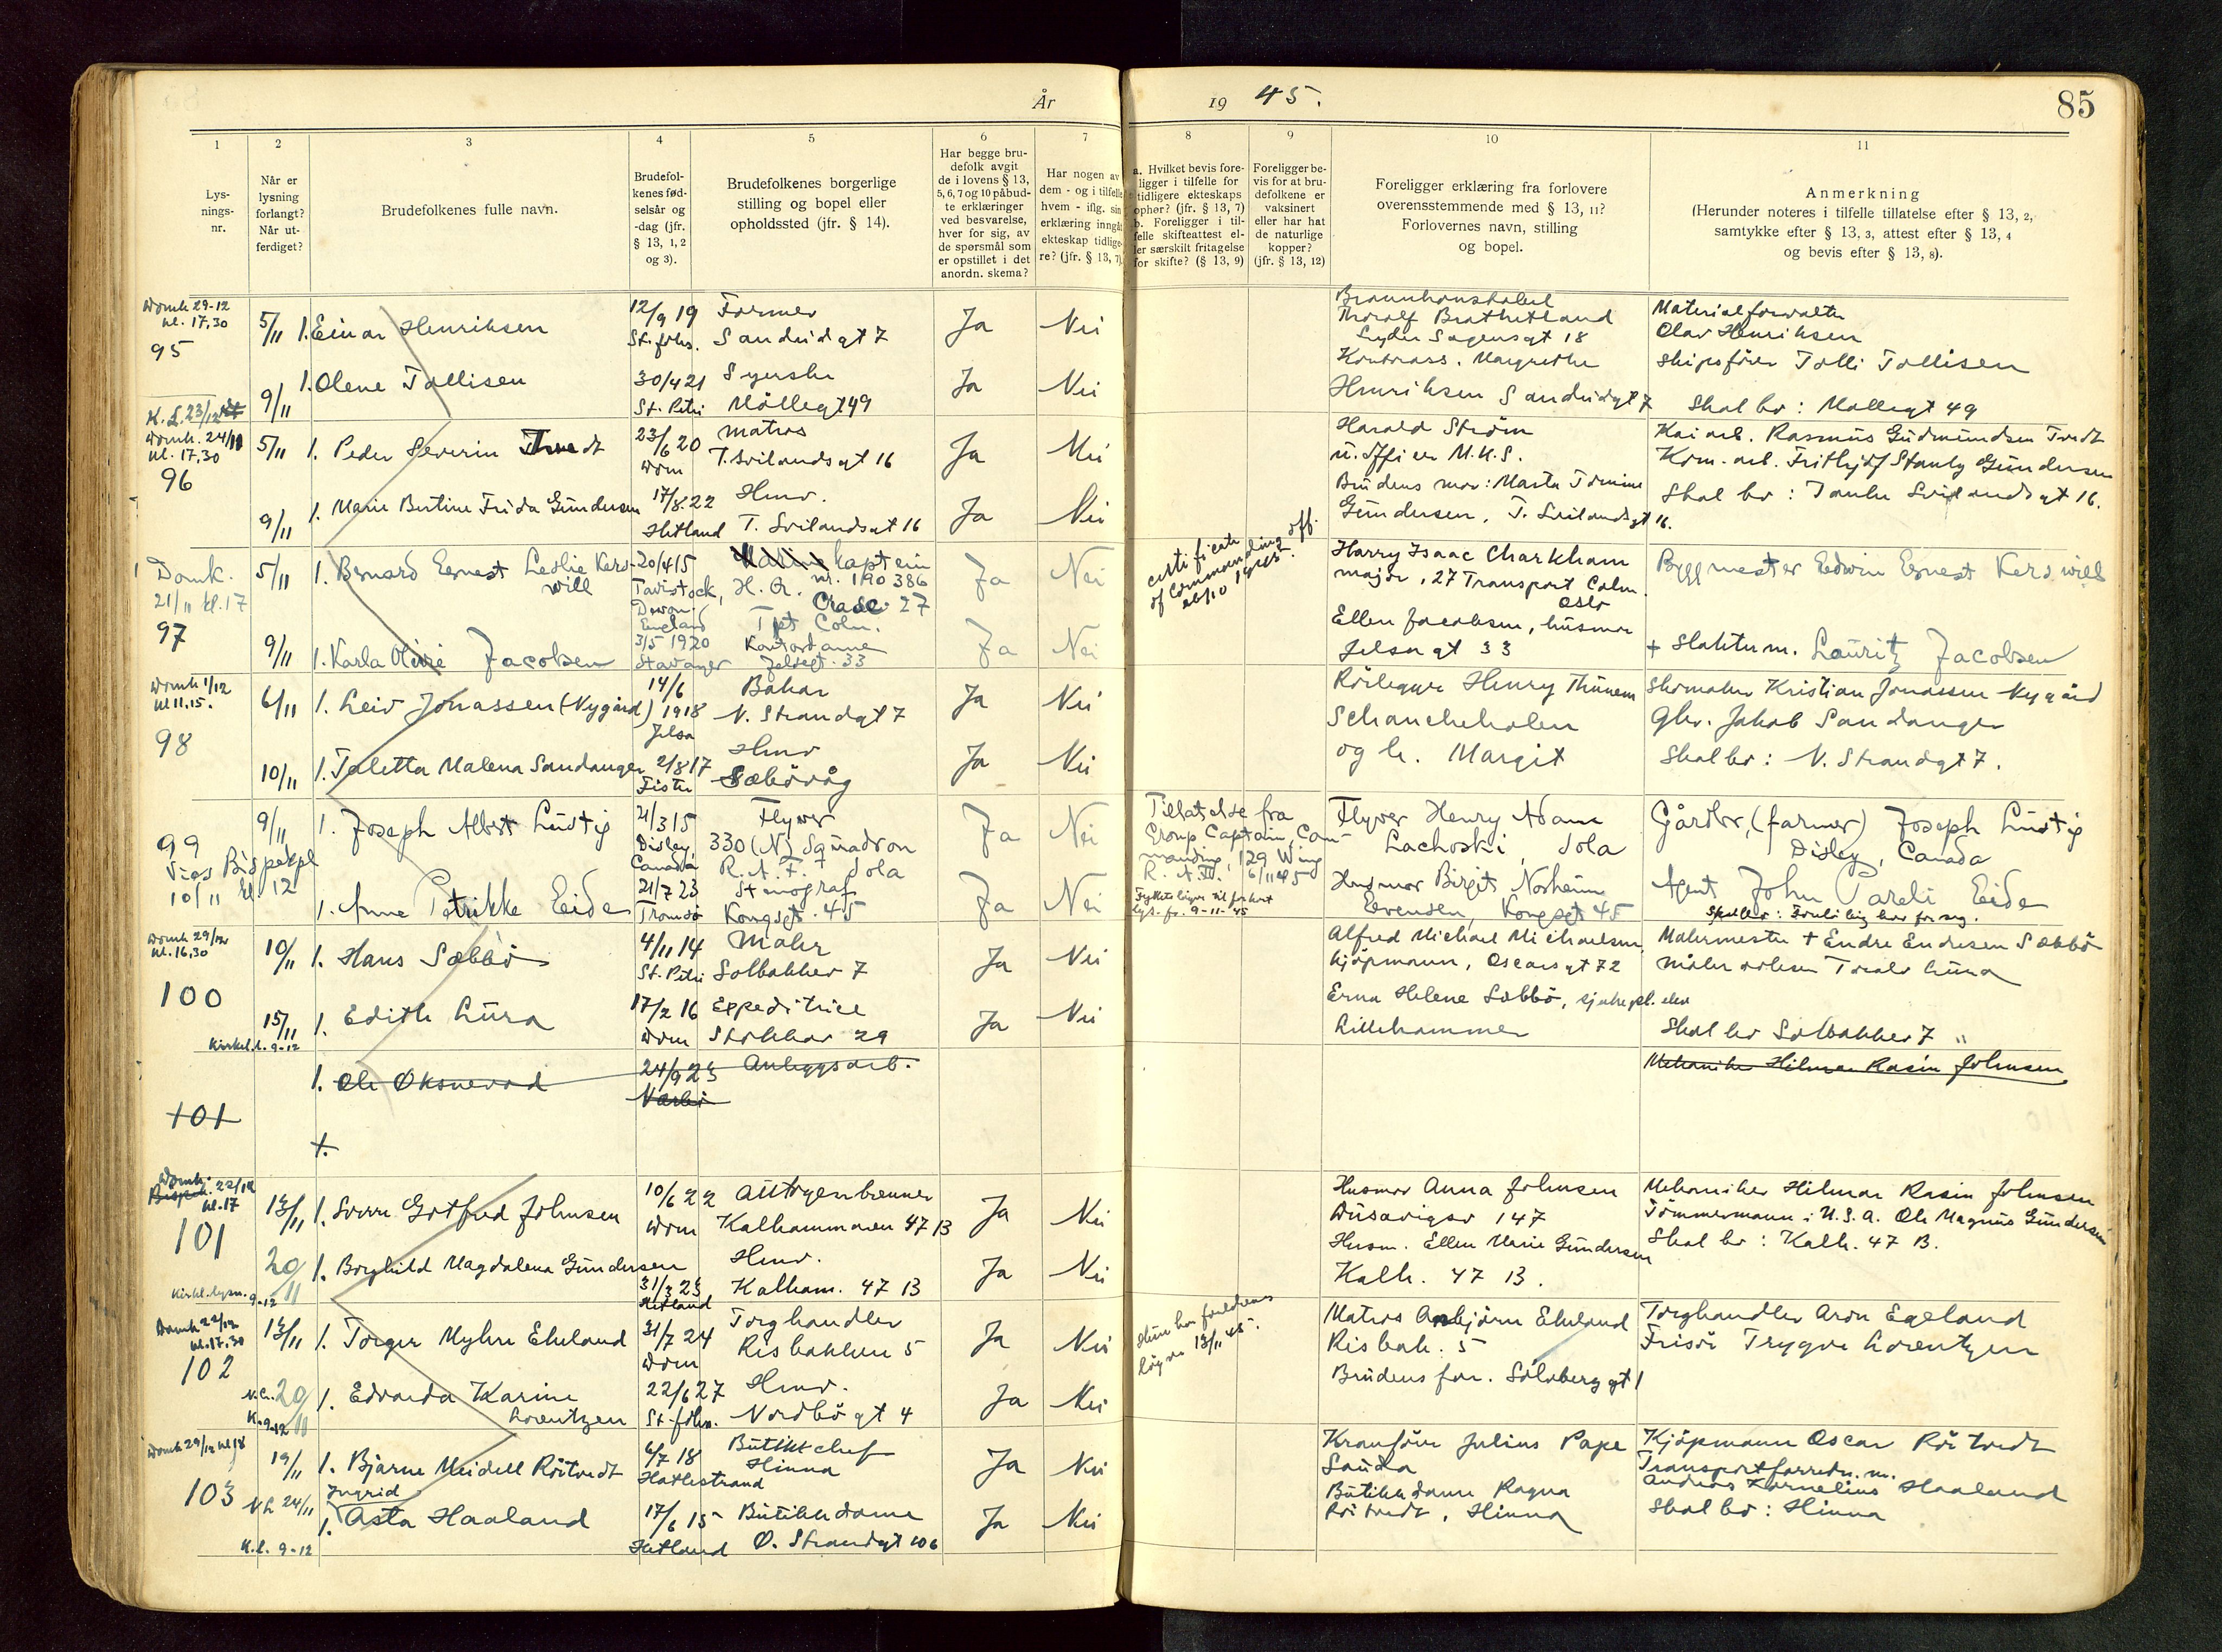 År
19 45.
85
1
Lys-
nings-
nr.
2
Når er
lysning
forlangt?
Når ut-
ferdiget?
3
Brudefolkenes fulle navn.
4
Brudefol-
kenes fød-
selsår og
-dag (jfr.
§ 13, 1, 2
og 3).
5
Brudefolkenes borgerlige
stilling og bopel eller
opholdssted (jfr. § 14).
6
Har begge bru-
defolk avgit
de i lovens § 13,
5, 6, 7 og 10 påbud-
te erklæringer
ved besvarelse,
hver for sig, av
de spørsmål som
er opstillet i det
anordn. skema?
7
Har nogen av
dem - og i tilfelle
hvem - iflg. sin
erklæring inngå
ekteskap tidlige-
re? (jfr. § 13, 7)
8
a. Hvilket bevis fore-
ligger i tilfelle for
tidligere ekteskaps
ophør? (jfr. § 13, 7)
b. Foreligger i til-
felle skifteattest el-
ler særskilt fritagelse
for skifte? (§ 13, 9)
9
Foreligger be-
vis for at bru-
defolkene er
vaksinert
eller har hat
de naturlige
kopper?
(jfr. § 13, 12)
10
Foreligger erklæring fra forlovere
overensstemmende med § 13, 11?
Forlovernes navn, stilling
og bopel.
11
Anmerkning
(Herunder noteres i tilfelle tillatelse efter § 13, 2,
samtykke efter § 13, 3, attest efter § 13, 4
og bevis efter § 13, 8).
Domk 29-12
kl. 17,30
95
5/11 1. Einar Henriksen
12/9 19
St. Johs.
Former
Sandeidgt 7
Ja Nei
Thorolf Brathetland
Lyder Sagensgt 18
Materialforvalter
Olav Henriksen
9/11 1. Olene Tollisen
30/4 21
St. Petri
Syerske
Møllegt 49
Ja Nei
Kontorass. Margrethe
Henriksen Sandeidgt 7
Skipsfører Tolli Tollisen
Skal bo: Møllegt 49
K.L. 23/12
Domk. 24/11
kl. 17,30
96
5/11 1. Peder Severin Tvedt
23/6 20
Dom
Matros
T. Svilandsgt 16
Ja Nei
Harald Strøm
u.offiser M.K.S.
Kaiarb. Rasmus Gudmundsen Tvedt
Kom. arb. Frithjof Stanly Gundersen
9/11 1. Marie Bertine Frida Gundersen
17/8 22
Hetland
Hmv.
T. Svilandsgt 16
Ja Nei
Brudens mor: Marta Tomine
Gundersen, T. Svilandsgt 16.
Skal bo: Tanke Svilandsgt 16.
Domk.
21/11 kl. 17
97
5/11 1. Bernard Ernest Leslie Kers-
will
20/4 15
Tavistock,
Devon.
England
Kaptein
nr. 190386
H. Q. 27
Tpt Colm.
Ja Nei
certificate
of Commanding off.
Harry Isaac Charkham
major, 27 Transport Colm.
Oslo
Byggmester Edwin Ernest Kerswill
9/11 1. Karla Olivie Jacobsen
3/5 1920
Stavanger
Kontordame
Jelsegt. 33
Ja Nei
Ellen Jacobsen, husmor
Jelsagt 33
+ Slakterm. Lauritz Jacobsen
Domk 1/12
kl 11,15.
98
6/11 1. Leiv Jonassen (Nygård)
14/6
1918
Jelsa
Baker
N. Strandgt 7
Ja Nei
Rørlegger Henry Thunem
Schancheholen
Skomaker Kristian Jonassen Nygård
10/11 1. Taletta Malena Sandanger
2/8 17
Fister
Hmv
Sæbøvåg
Ja Nei
og h. Margit
Gbr. Jakob Sandanger
Skal bo: N. Strandgt 7.
99
Vies Bispekpl
10/11 kl. 12
9/11
1. Joseph Albert Lustig
21/3 15
Disley,
Canada
Flyver
330 (N) Squadron
R.A.F. Sola
Ja Nei
Tillatelse fra
Group Captain, Com-
manding, 129 Wing
R.A.F. 6/11 45
Flyver Henry Adam
Lachoski, Sola
Gårdbr. (farmer) Joseph Lustig
Disley, Canada
1. Anne Petrikke Eide
21/7 23
Tromsø
Stenograf
Kongsgt. 45
Ja Nei
9-11-45
Husmor Birgit Norheim
Evensen, Kongsgt 45
Agent John Pareli Eide
Domk 29/12
kl. 16,30
100
10/11 1. Hans Sæbbø
4/11 14
St. Petri
Maler
Solbakkev 7
Ja Nei
Alfred Michael Michaelsen
kjøpmann, Oscarsgt 72
Malermester + Endre Endresen Sæbbø
15/11 1. Edith Lura
17/2 16
Dom
Expeditrice
Stokkav 29
Ja Nei
Erna Helene Sæbbø, sykepl. elev
Lillehammer
Skal bo Solbakkev 7
Kirkel.l. 9-12
101
1. Ole Oksnevad
24/9 23
Anleggsarb.
Mekaniker Hilmar Rasin Johnsen
1.
Domk.
Bispek. 22/12
kl. 17
101
13/11 1. Sverre Gotfred Johnsen
10/6 22
Dom
Autogenbrenner
Kalhammaren 47 B
Ja Nei
Husmor Anna Johnsen
Dusavigsv 147
Mekaniker Hilmar Rasin Johnsen
Tømmermann i U.S.A. Ole Magnus Gundersen
20/11 1. Borghild Magdalena Gundersen
31/3 23
Hetland
Hmv.
Kalham. 47 B
Ja Nei
Husm. Ellen Marie Gundersen
Kalh. 47 B.
Skal bo: Kalh. 47 B.
Kirkl. lysn. 9-12
Domk 22/12
kl. 17,30
102
13/11 1. Torger Myhre Ekeland
31/7 24
Dom
Torghandler
Risbakken 5
Ja Nei
13/11 45.
Matros Arnbjørn Ekeland
Risbak. 5
Torghandler Aron Egeland
Frisør Trygve Lorentzen
20/11 1. Edvarda Karine
Lorentzen
22/6 27
St. Johs.
Hmv.
Nordbøgt 4
Ja Nei
Brudens far. Sølvberggt 1
K. 9-12
Domk 29/12 kl 18
103
19/11 1. Bjarne Meidell Røstvedt
6/7 18
Hatlestrand
Butikkchef
Hinna
Ja Nei
Kranfører Julius Pape
Sauda
Kjøpmann Oscar Røstvedt
24/11
Ingrid
1. Asta Haaland
17/6 15
Hetland
Butikkdame
Ø. Strandgt 106
Ja Nei
Butikkdame Ragna
Røstvedt, Hinna
Transportforretn. m.
Andreas Kornelius Haaland
Skal bo: Hinna
K.l. 9-12